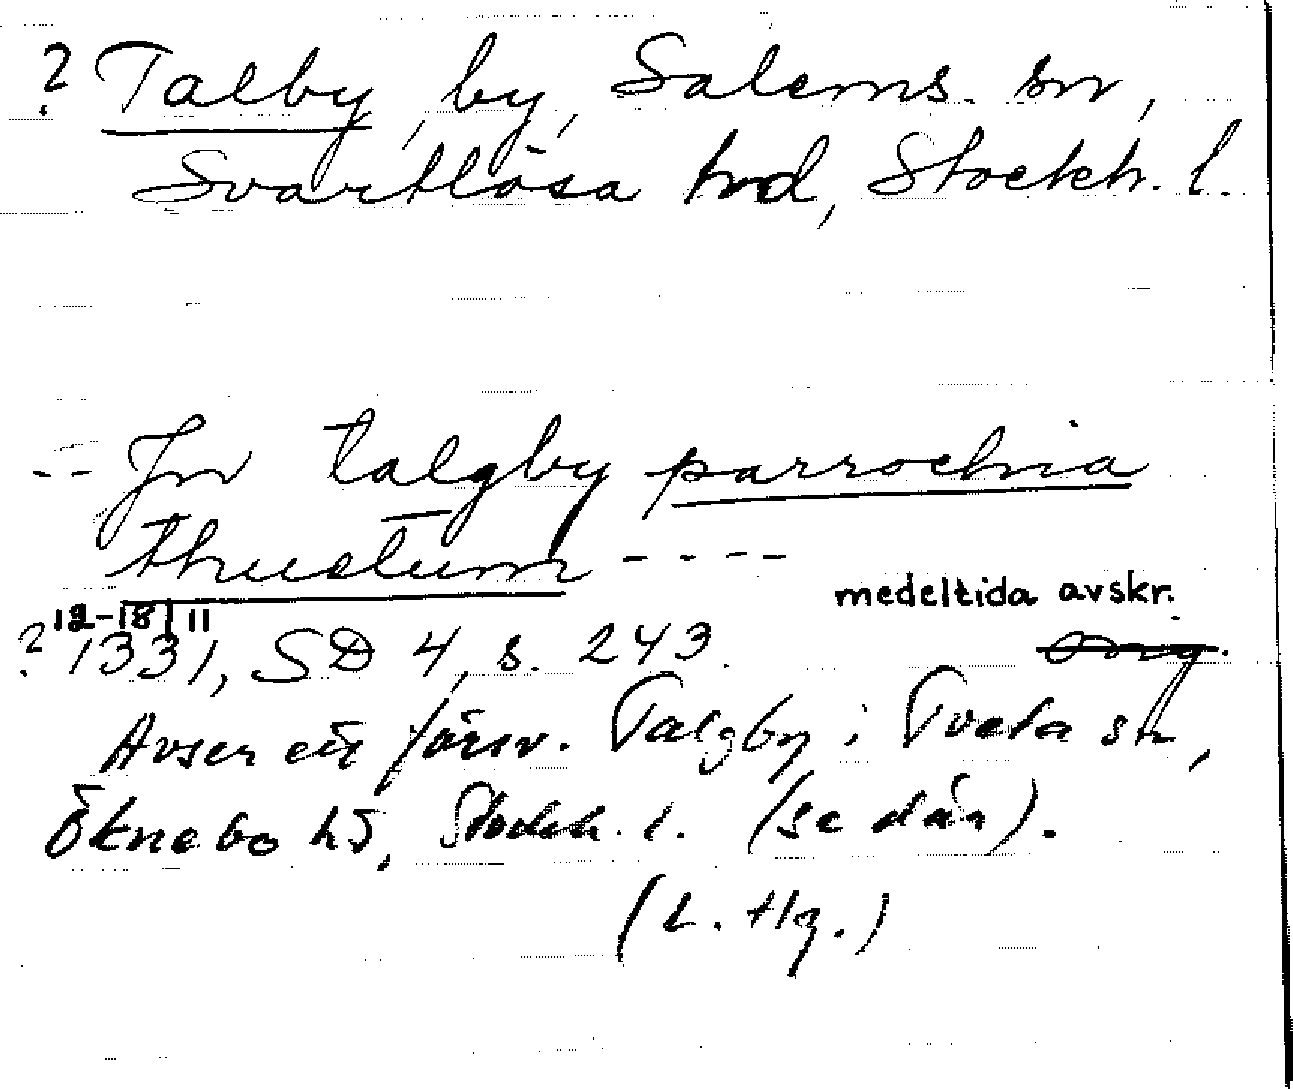 ? Talby, by, Salems sn,
Svartlösa hrd, Stockh. l.
-- Jn talgby parrochia
thuetum ----
medeltida avskr.
12-18/11
? 1331, SD 4, s. 243. orig.
Avser ett försv. Talgby i Tveta sn,
Öknebo hd, Stockh. l. (se där).
(L. Hg.)